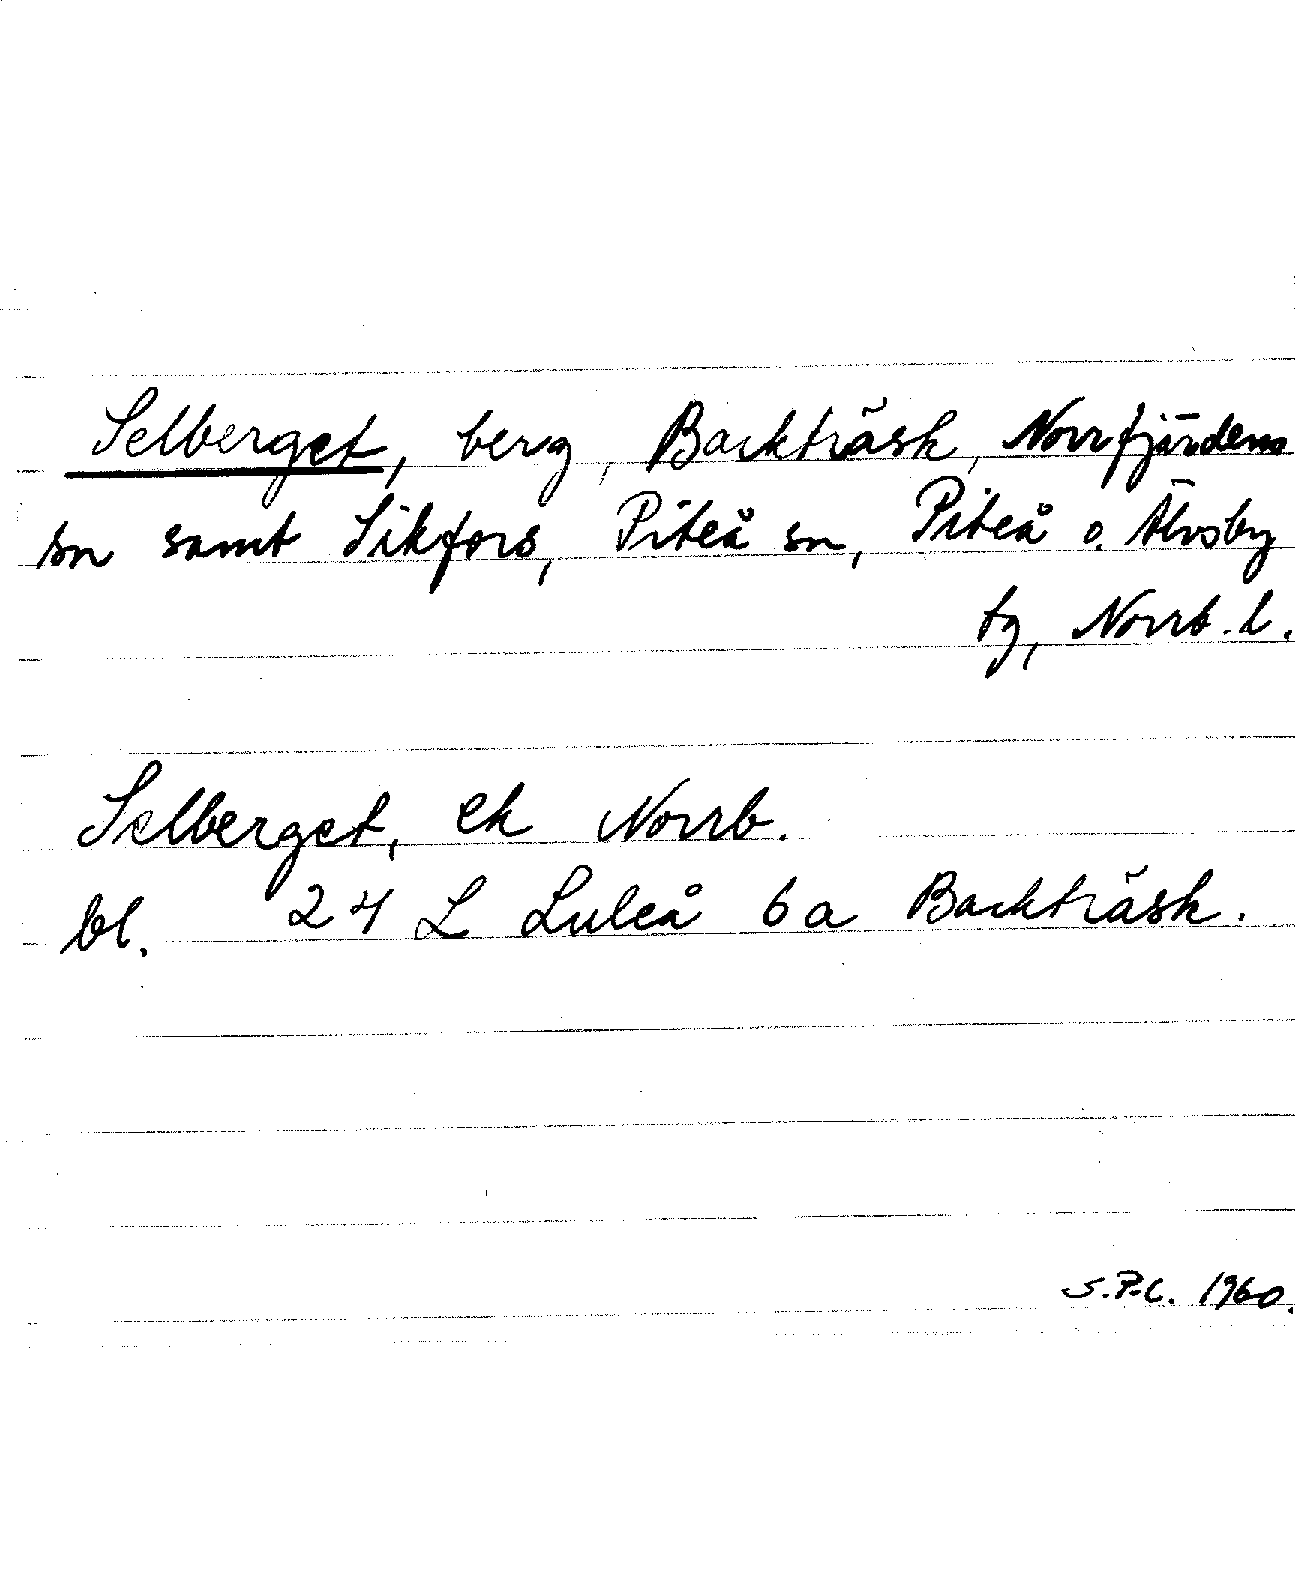 Selberget, berg, Backträsk, Norrfjärdens
sn samt Sikfors, Piteå sn, Piteå o. Älvsby
tg, Norrb. l.
Selberget, ek Norrb.
bl. 24 L Luleå 6a Backträsk.
S.P.C. 1960.